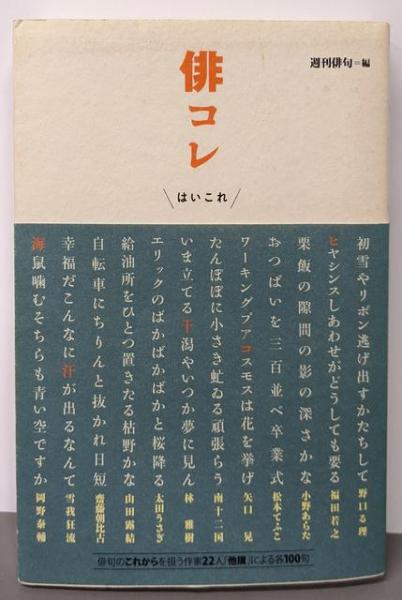 週刊俳句=編
俳コレ
はいこれ
初雪やリボン逃げ出すかたちして 野口る理
ヒヤシンスしあわせがどうしても要る 福田若之
栗飯の隙間の影の深さかな 小野あらた
おっぱいを三百並べ卒業式 松本てふこ
ワーキングプアコスモスは花を挙げ 矢口晃
たんぽぽに小さき虻ゐる頑張らう 南十二国
いま立てる干潟やいつか夢に見ん 林雅樹
エリックのばかばかばかと桜降る 太田うさぎ
給油所をひとつ置きたる枯野かな 山田露結
自転車にちりんと抜かれ日短 齋藤朝比古
幸福だこんなに汗が出るなんて 雪我狂流
海鼠噛むそちらも青い空ですか 岡野泰輔
俳句のこれからを担う作家22人「他撰」による各100句